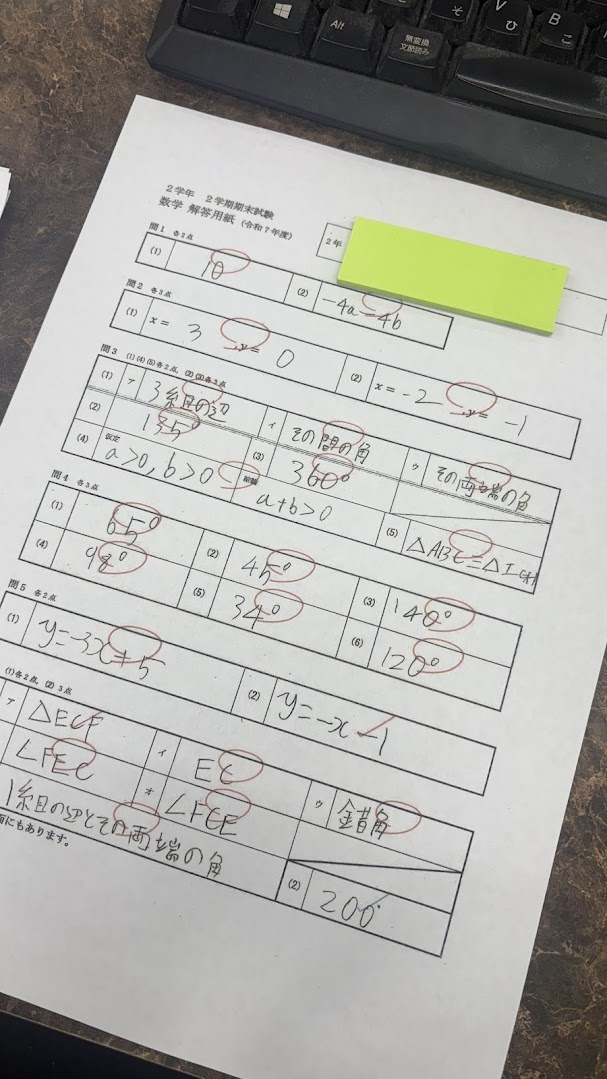 Alt
無変換
文節読み
そ
V
ひ
B
こ
N
2学年 2学期期末試験
数学 解答用紙 (令和7年度)
2年
問1 各2点
(1) 10 (2) -4a-4b
問2 各3点
(1) x= 3 ,y= 0 (2) x=-2 ,y= -1
問3 (1)(4)(5)各2点, (2)(3)各3点
(1) ア 3組の辺 イ その間の角 ウ その両端の角
(2) 135° (3) 360°
(4) 仮定 a>0, b>0 結論 a+b>0 (5) △ABC≡△IGH
問4 各3点
(1) 65° (2) 45° (3) 140°
(4) 98° (5) 34° (6) 120°
問5 各2点
(1) y=-3x+5 (2) y=-x-1
(1)各2点, (2) 3点
ア △ECF イ EC ウ 錯角
∠FEC オ ∠FCE
1組の辺とその両端の角 (2) 200°
面にもあります。